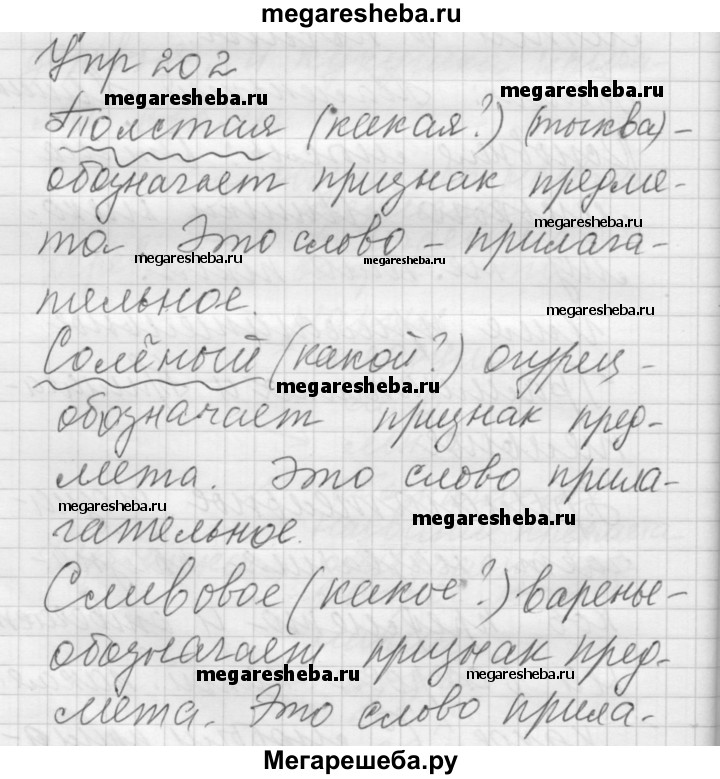 megaresheba.ru
Упр 202
megaresheba.ru
megaresheba.ru
Толстая (какая?) (тыква) -
обозначает признак предме-
megaresheba.ru
та. Это слово - прилага-
megaresheba.ru
megaresheba.ru
тельное.
megaresheba.ru
Солёный (какой?) огурец -
megaresheba.ru
обозначает признак пред-
мета. Это слово прила-
megaresheba.ru
megaresheba.ru
гательное.
Сливовое (какое?) варенье -
обозначает признак пред-
megaresheba.ru
megaresheba.ru
мета. Это слово прила-
Мегарешеба.ру